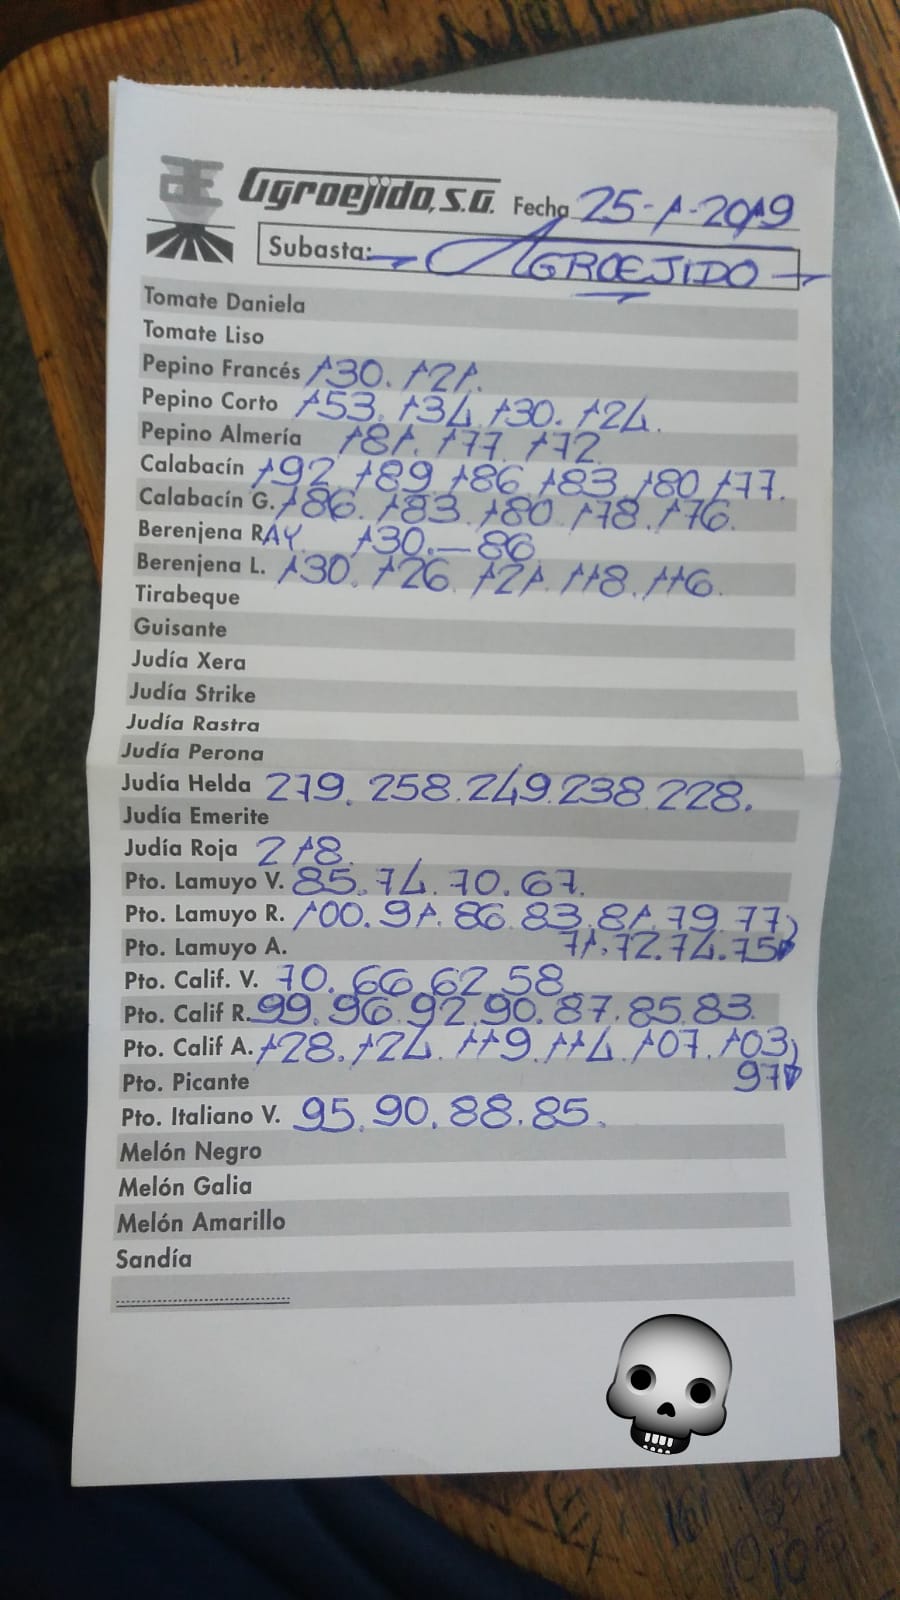 Agroejido, S.A. Fecha 25-1-2019
Subasta: AGROEJIDO
Tomate Daniela
Tomate Liso
Pepino Francés 130. 121.
Pepino Corto 153. 134. 130. 124.
Pepino Almería 181. 177. 172.
Calabacín 192. 189. 186. 183. 180. 177.
Calabacín G. 186. 183. 180. 178. 176.
Berenjena RAY. 130.—86
Berenjena L. 130. 126. 121. 118. 116.
Tirabeque
Guisante
Judía Xera
Judía Strike
Judía Rastra
Judía Perona
Judía Helda 279. 258. 249. 238. 228.
Judía Emerite
Judía Roja 218.
Pto. Lamuyo V. 85. 74. 70. 67.
Pto. Lamuyo R. 100. 91. 86. 83. 81. 79. 77)
Pto. Lamuyo A. 71. 72. 74. 75
Pto. Calif. V. 70. 66. 62. 58.
Pto. Calif R. 99. 96. 92. 90. 87. 85. 83.
Pto. Calif A. 128. 124. 119. 114. 107. 103)
Pto. Picante 97
Pto. Italiano V. 95. 90. 88. 85.
Melón Negro
Melón Galia
Melón Amarillo
Sandía